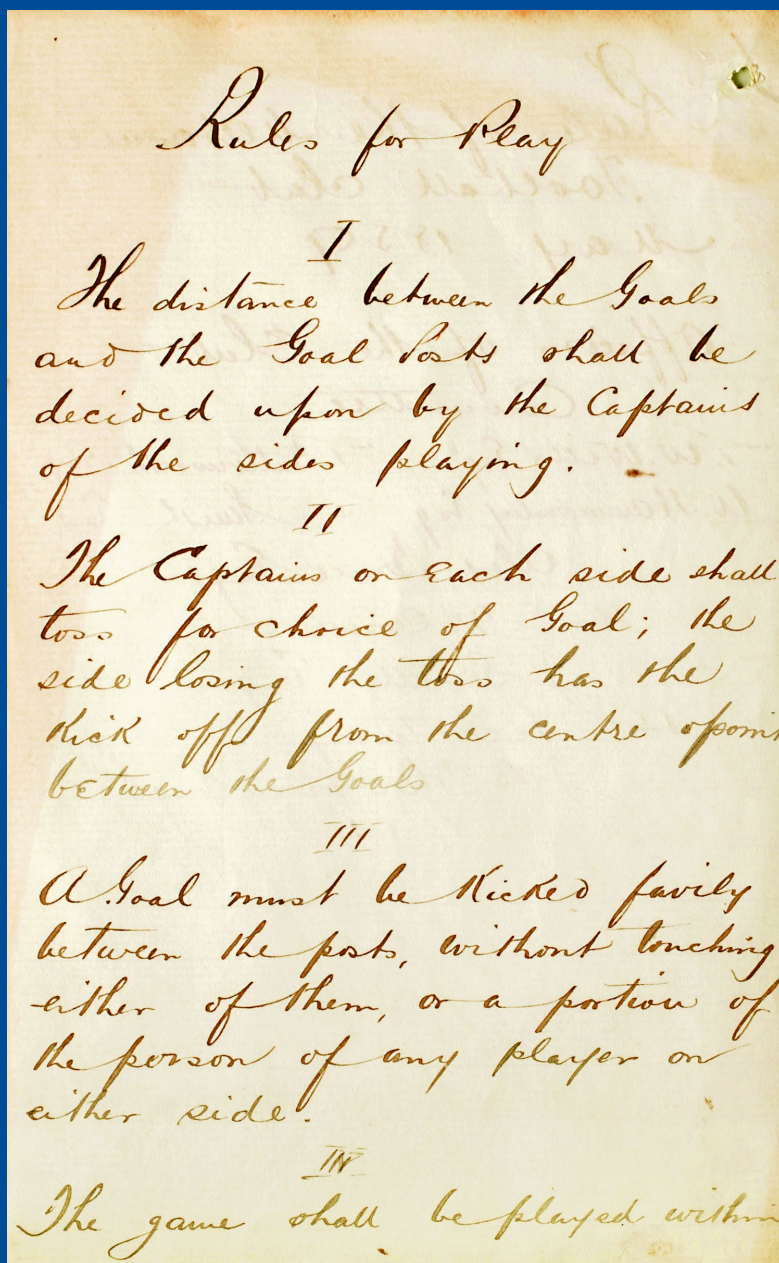 Rules for Play
I
The distance between the Goals
and the Goal Posts shall be
decided upon by the Captains
of the sides playing.
II
The Captains on each side shall
toss for choice of Goal; the
side losing the toss has the
Kick off from the centre
between the Goals
III
A Goal must be Kicked
between the posts, without touching
either of them, or a portion of
the person of any player on
either side.
IV
The game shall be played within